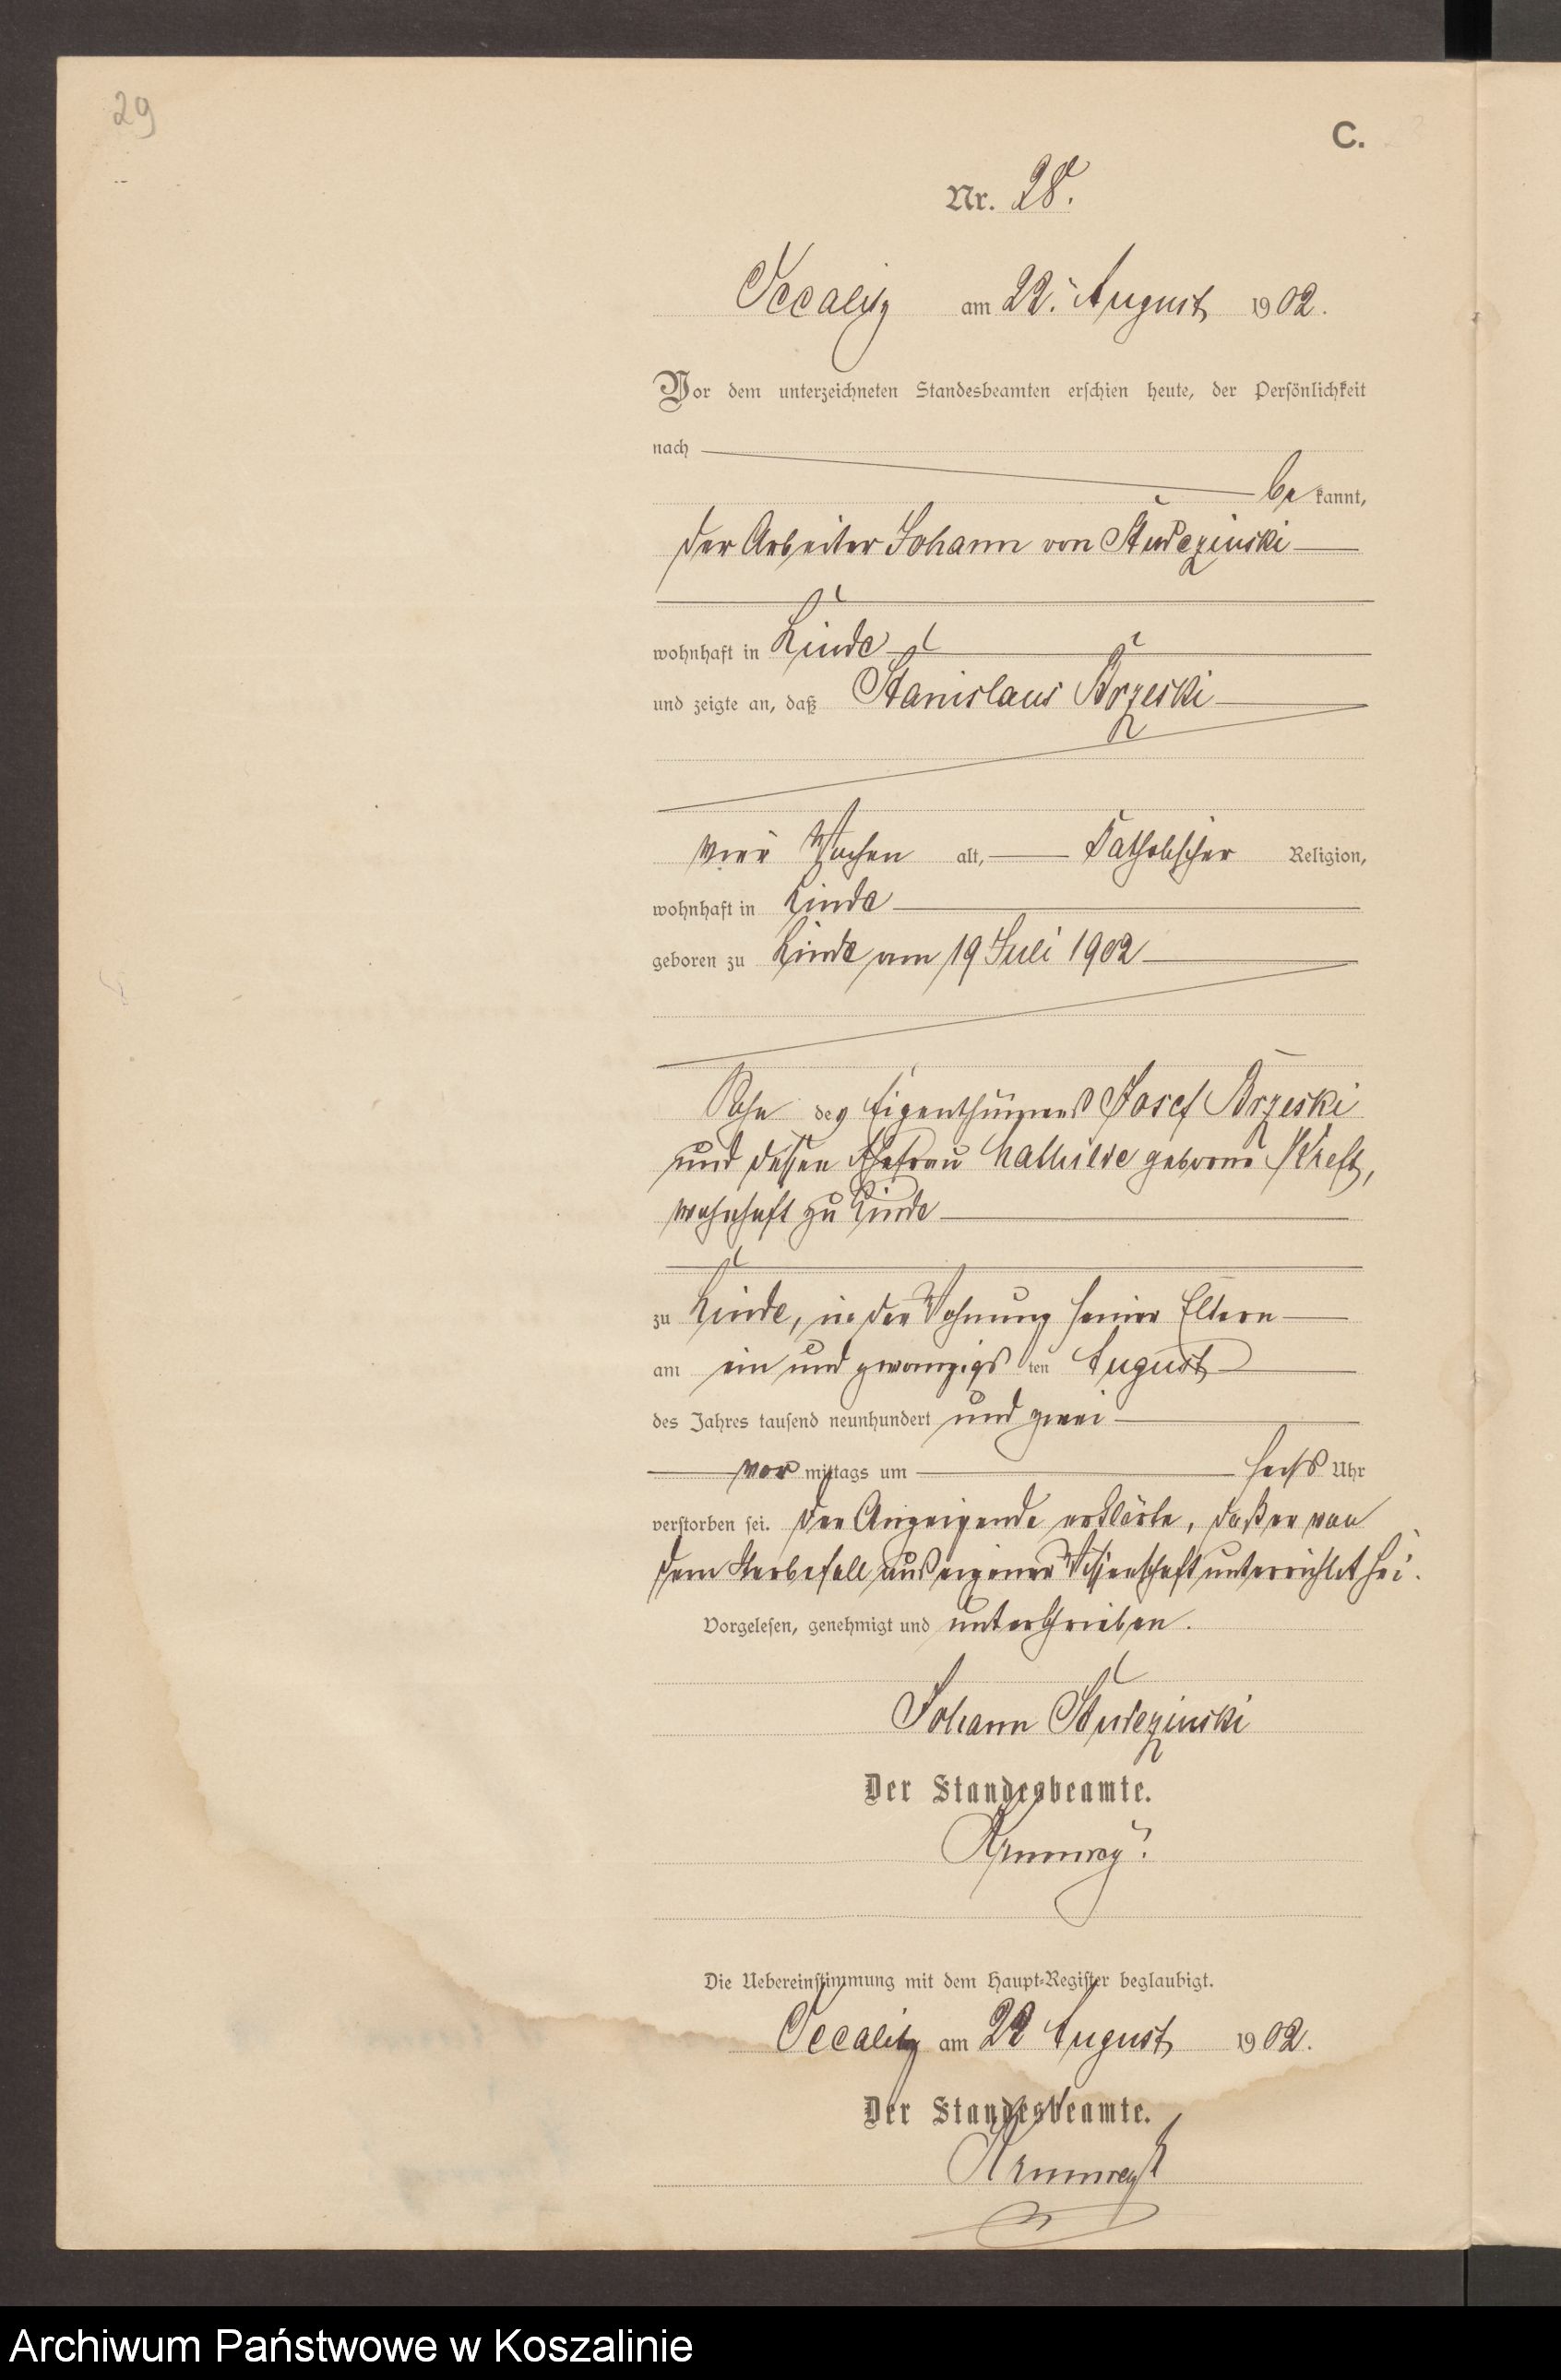 29
C.
Nr. 28.
Occalitz am 22. August 1902.
Vor dem unterzeichneten Standesbeamten erschien heute, der Persönlichkeit
nach
be kannt,
der Arbeiter Johann von Studzinski
wohnhaft in Linde
und zeigte an, daß Stanislaus Brzeski
vier Wochen alt, katholischer Religion,
wohnhaft in Linde
geboren zu Linde am 19 Juli 1902
Sohn des Eigenthümers Josef Brzeski
und dessen Ehefrau Mathilde geborne Kreft,
wohnhaft zu Linde
zu Linde, in der Wohnung seiner Eltern
am ein und zwanzigs ten August
des Jahres tausend neunhundert und zwei
vor mittags um sechs Uhr
verstorben sei. Der Anzeigende erklärte, daß er von
dem Sterbefall aus eigener Wissenschaft unterrichtet sei.
Vorgelesen, genehmigt und unterschrieben.
Johann Studzinski
Der Standesbeamte.
Die Uebereinstimmung mit dem Haupt-Register beglaubigt.
Occalitz am 22 August 1902.
Der Standesbeamte.
Archiwum Państwowe w Koszalinie